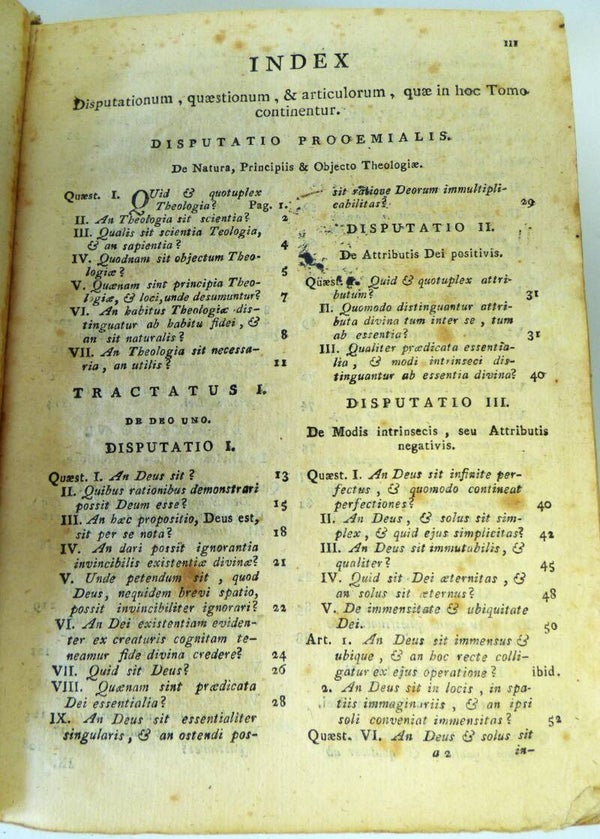 III
INDEX
Disputationum, quæstionum, & articulorum, quæ in hoc Tomo
continentur.
DISPUTATIO PROOEMIALIS.
De Natura, Principiis & Objecto Theologiæ.
Quæst. I. QUid & quotuplex
Theologia? Pag. 1.
II. An Theologia sit scientia? 2
III. Qualis sit scientia Teologia,
& an sapientia? 4
IV. Quodnam sit objectum Theo-
logiæ? 5
V. Quænam sint principia Theo-
logiæ, & loci, unde desumuntur? 7
VI. An habitus Theologiæ dis-
tinguatur ab habitu fidei, &
an sit naturalis? 8
VII. An Theologia sit necessa-
ria, an utilis? 11
TRACTATUS I.
DE DEO UNO.
DISPUTATIO I.
Quæst. I. An Deus sit? 13
II. Quibus rationibus demonstrari
possit Deum esse? 15
III. An hæc propositio, Deus est,
sit per se nota? 18
IV. An dari possit ignorantia
invincibilis existentiæ divinæ? 21
V. Unde petendum sit, quod
Deus, nequidem brevi spatio,
possit invincibiliter ignorari? 22
VI. An Dei existentiam eviden-
ter ex creaturis cognitam te-
neamur fide divina credere? 24
VII. Quid sit Deus? 26
VIII. Quænam sint prædicata
Dei essentialia? 28
IX. An Deus sit essentialiter
singularis, & an ostendi pos-
sit ratione Deorum immultipli-
cabilitas? 29
DISPUTATIO II.
De Attributis Dei positivis.
Quæst. I. Quid & quotuplex attri-
butum? 31
II. Quomodo distinguantur attri-
buta divina tum inter se, tum
ab essentia? 31
III. Qualiter prædicata essentia-
lia, & modi intrinseci dis-
tinguantur ab essentia divina? 40
DISPUTATIO III.
De Modis intrinsecis, seu Attributis
negativis.
Quæst. I. An Deus sit infinite per-
fectus, & quomodo contineat
perfectiones? 40
II. An Deus, & solus sit sim-
plex, & quid ejus simplicitas? 42
III. An Deus sit immutabilis, &
qualiter? 45
IV. Quid sit Dei æternitas, &
an solus sit æternus? 48
V. De immensitate & ubiquitate
Dei. 50
Art. 1. An Deus sit immensus &
ubique, & an hoc recte colli-
gatur ex ejus operatione? ibid.
2. An Deus sit in locis, in spa-
tiis immaginariis, & an ipsi
soli conveniat immensitas? 52
Quæst. VI. An Deus & solus sit
a 2 in-